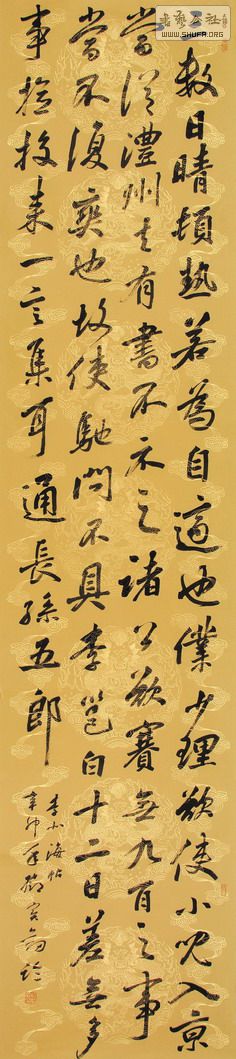 数日晴頓熱若為自適也僕少理欲使小兒入京
當從澧州去有書不示之諸公欲賽無九百之事
當不復爽也故使馳問不具李邕白十二日差無多
事撿校來一言集耳通長孫五郎
李北海帖
辛卯年
WWW.SHUFA.ORG